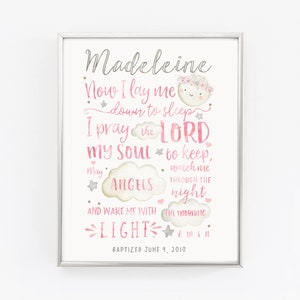 Madeleine
Now I lay me
down to sleep
I pray the LORD
my soul to keep,
May ANGELS watch me
THROUGH THE
night
AND WAKE ME WITH
THE MORNING
LIGHT
AMEN
BAPTIZED JUNE 9, 2010